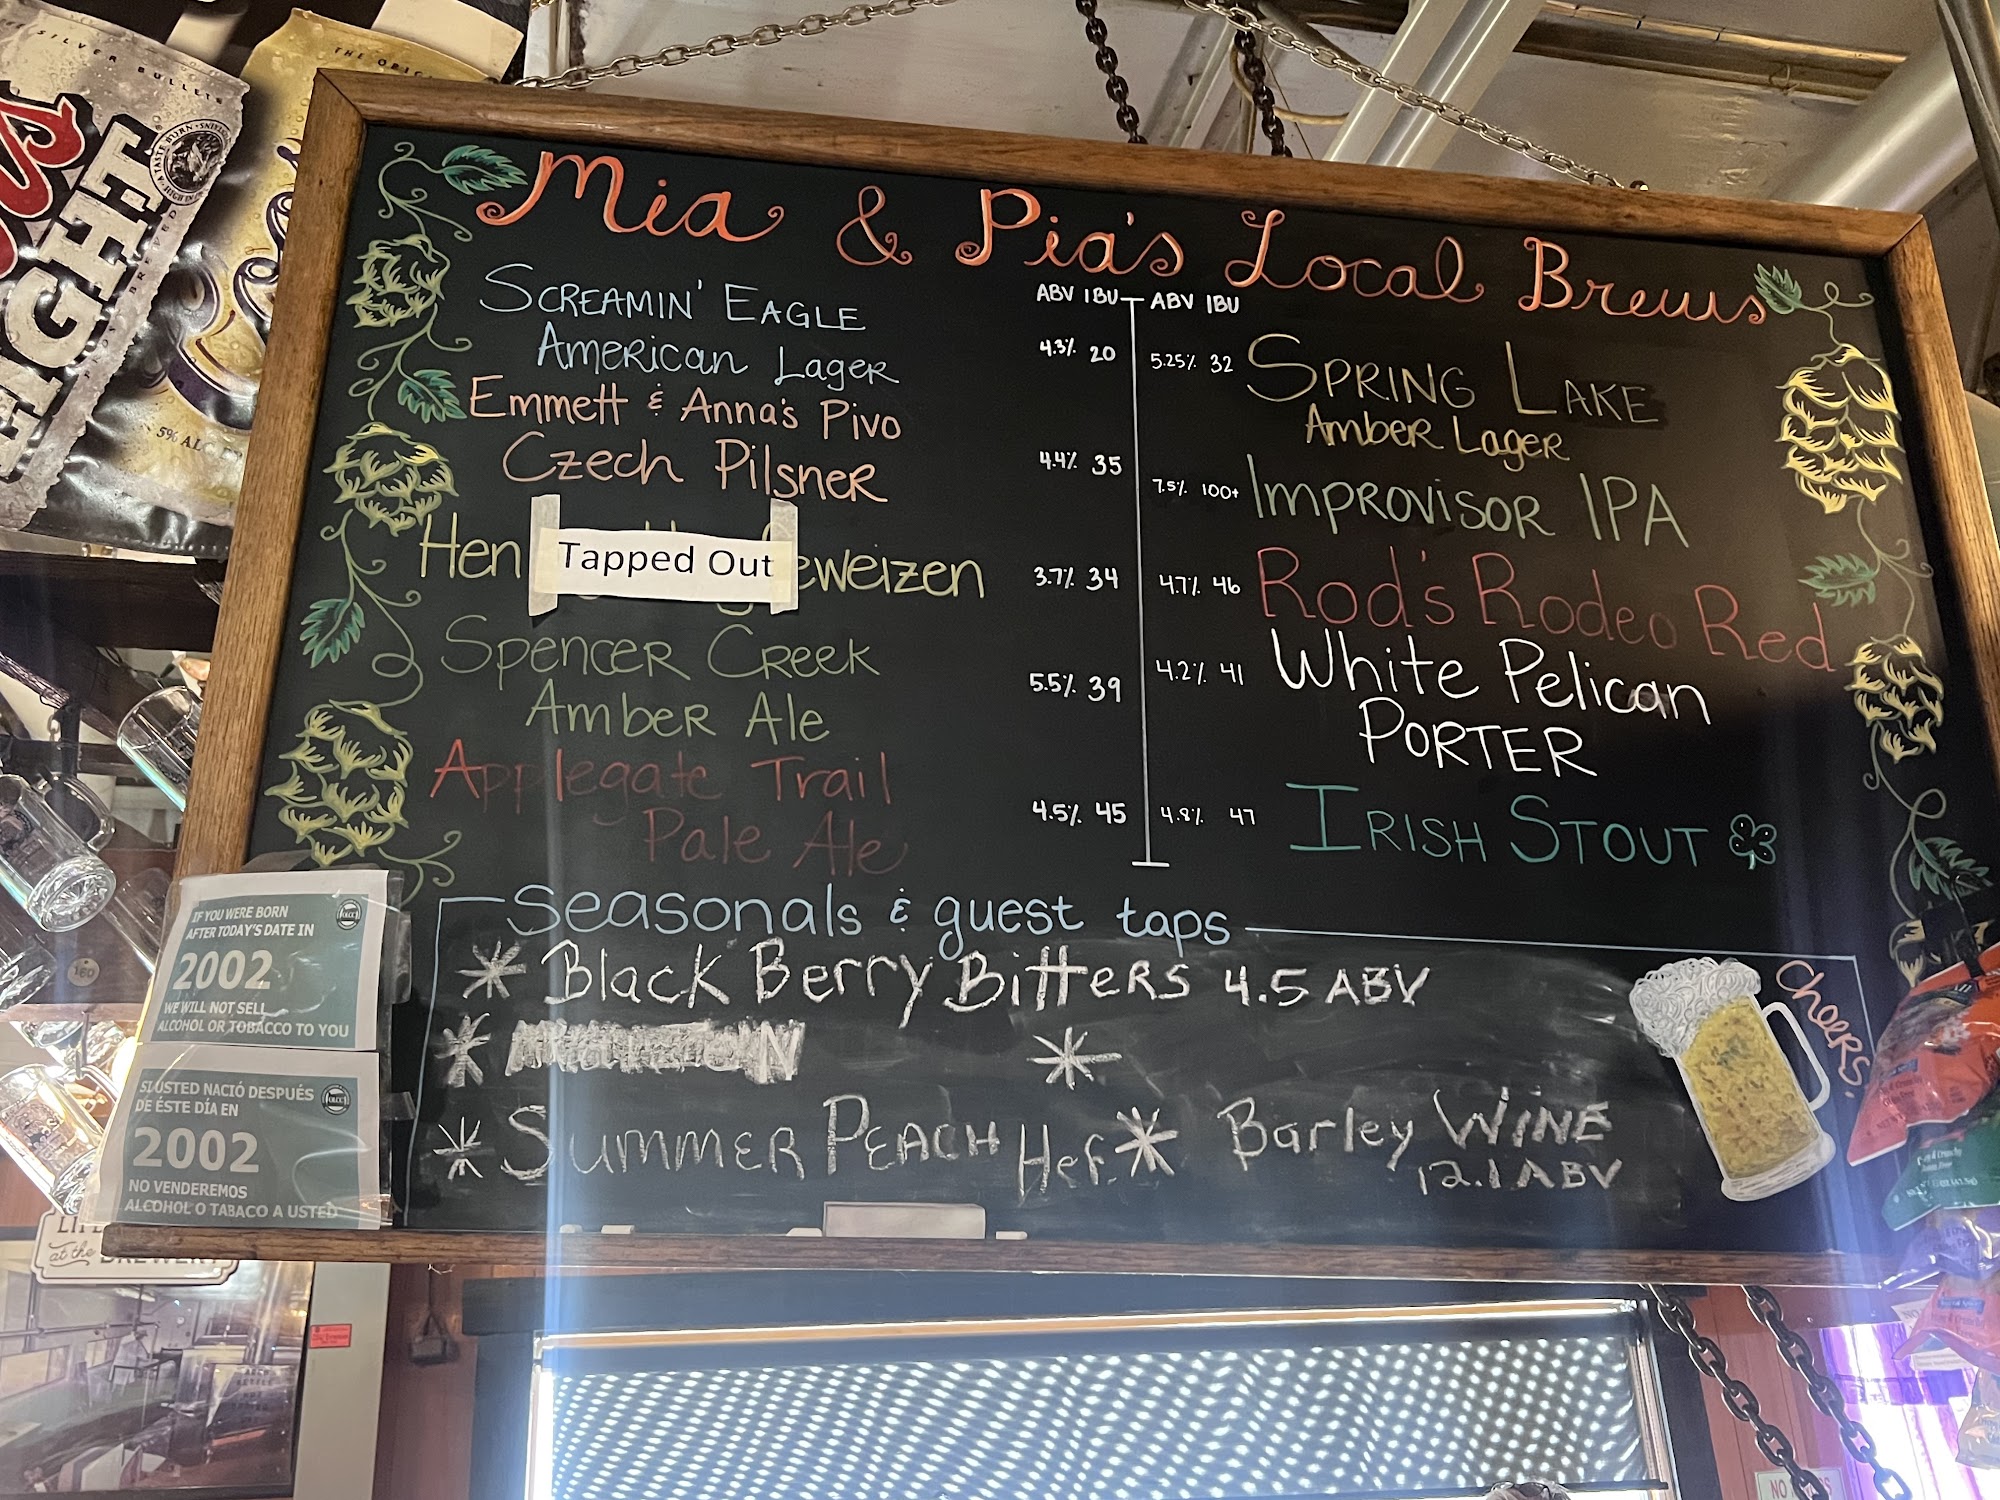 Mia & Pia's Local Brews
ABV IBU
ABV IBU
SCREAMIN' EAGLE
AMERICAN LAGER
4.3% 20
Emmett & Anna's Pivo
Czech PilsneR
4.4% 35
Hen
Tapped Out
eweizen
3.7% 34
SpenceR CReek
AmbeR Ale
5.5% 39
Applegate Trail
Pale Ale
4.5% 45
5.25% 32
SPRING LAKE
Amber Lager
7.5% 100+
IMPROVISOR IPA
4.7% 46
Rod's Rodeo Red
4.2% 41
White Pelican
PORTER
4.8% 47
IRISH STOUT
Seasonals & guest taps
* Black Berry BitteRs 4.5 ABV
*
*
* SummeR PEACH Hef.
* Barley WINE
12.1 ABV
Cheers!
IF YOU WERE BORN
AFTER TODAY'S DATE IN
2002
WE WILL NOT SELL
ALCOHOL OR TOBACCO TO YOU
OLCC
SI USTED NACIÓ DESPUÉS
DE ÉSTE DÍA EN
2002
NO VENDEREMOS
ALCOHOL O TABACO A USTED
OLCC
SILVER BULLETS
IGHT
BREWED
THE ORIG
5% ALC
160
LIFE
at the BREWERY
NO